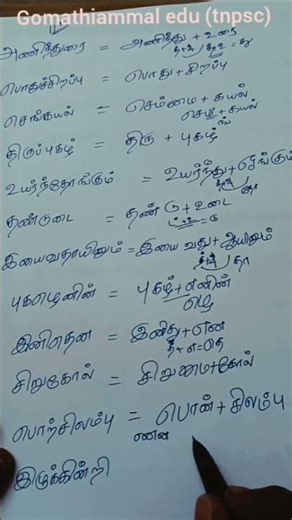 Gomathiammal edu (tnpsc)
அணிந்துரை = அணிந்து + உரை
பொதுச்சிறப்பு = பொது + சிறப்பு
செங்கயல் = செம்மை + கயல்
திருப்புகழ் = திரு + புகழ்
உயர்ந்தோங்கும் = உயர்ந்து + ஓங்கும்
தண்டுடை = தண்டு + உடை
ட் + உ = டு
இயைவதாயினும் = இயைவது + ஆயினும்
புகழெனின் = புகழ் + எனின்
ழெ
இனிதென = இனிது + என
த் + எ = தெ
சிறுகோல் = சிறுமை + கோல்
பொற்சிலம்பு = பொன் + சிலம்பு
இழுக்கின்றி